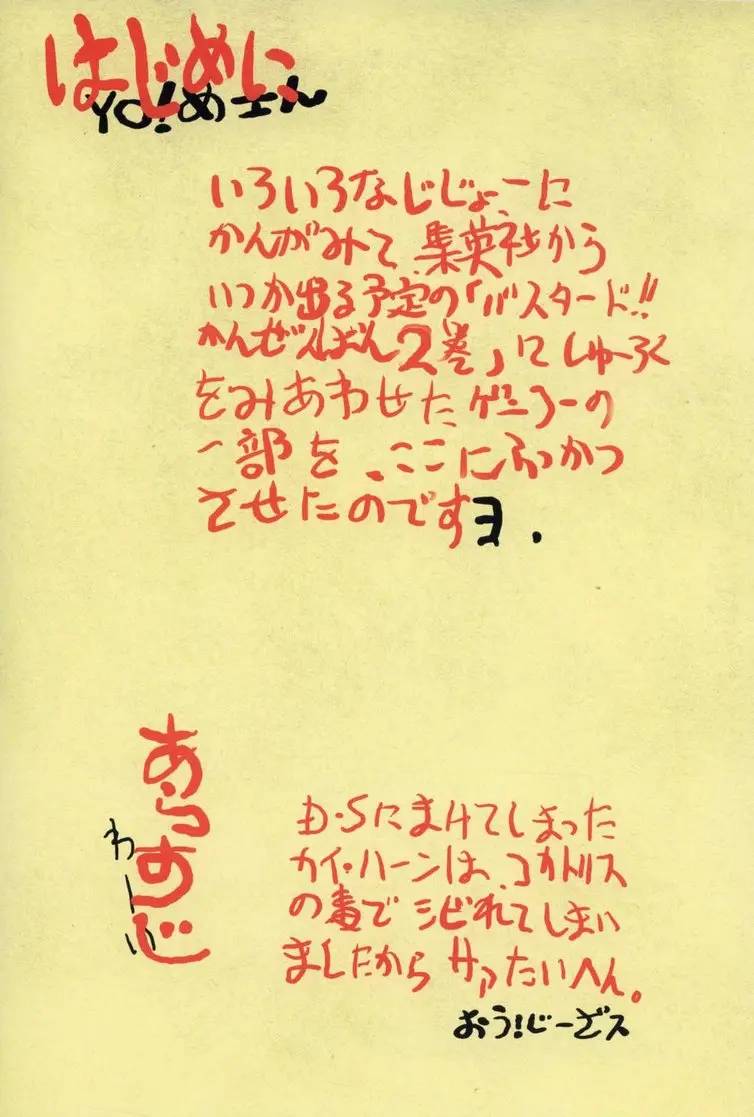 はじめに
YO!めーん
いろいろなじじょーに
かんがみて集英社から
いつか出る予定の「バスタード!!
かんぜんばん2巻」にしゅーろく
をみあわせたゲンコーの
一部を、ここにふっかつ
させたのですヨ.
あらすじ
わーい
D・Sにまけてしまった
カイ・ハーンは、コカトリス
の毒でシビれてしまい
ましたからサアたいへん。
おう!じーざス